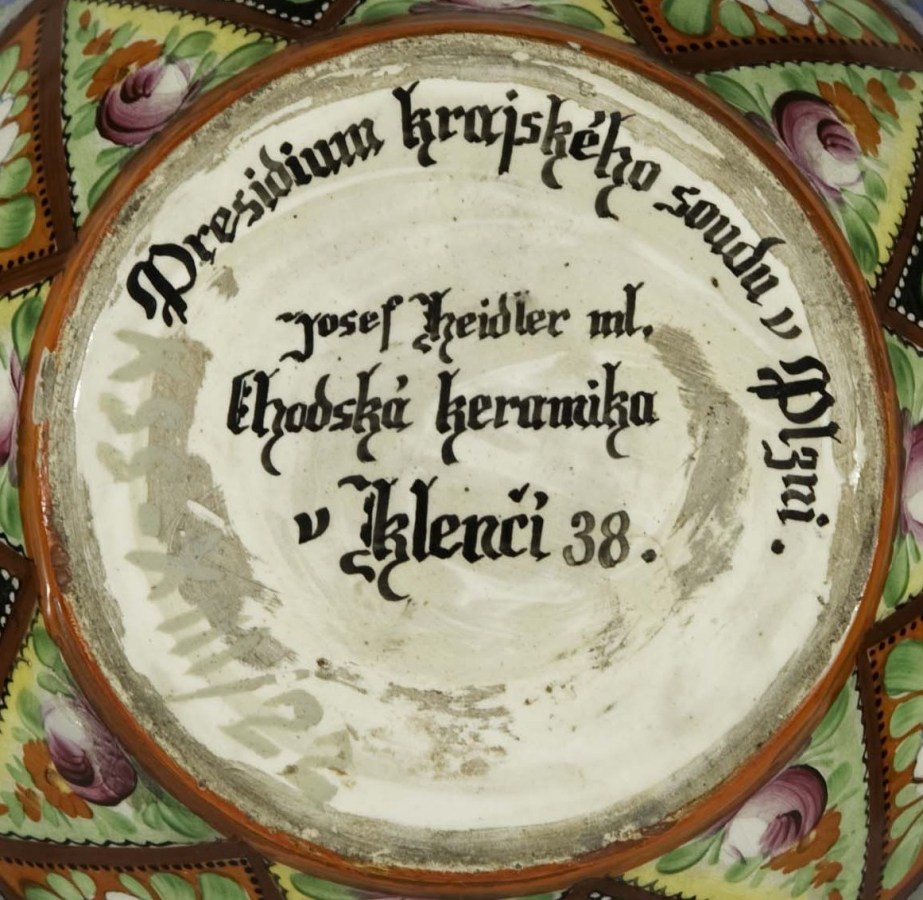 Presidium krajského soudu v Plzni.
Josef Heidler ml.
Chodská keramika
v Klenčí 38.